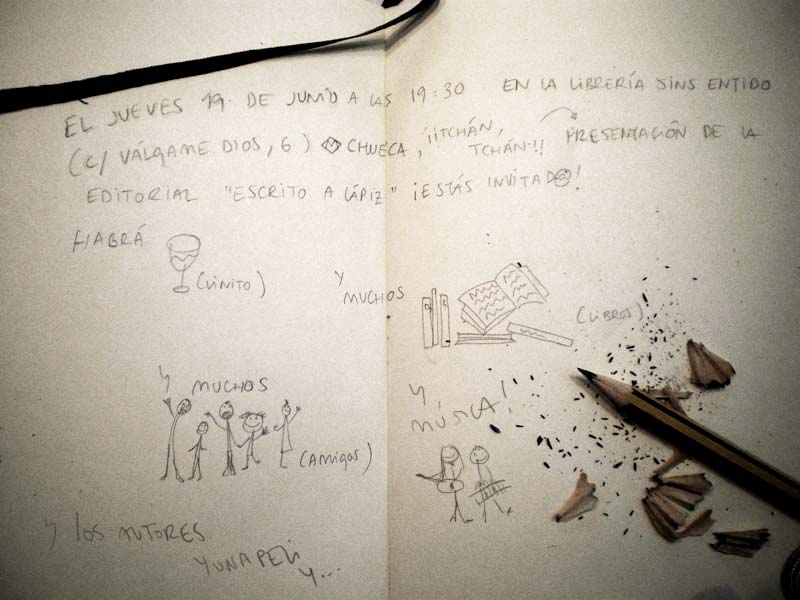 EL JUEVES 19 DE JUNIO A LAS 19:30 EN LA LIBRERÍA SINS ENTIDO
(C/ VÁLGAME DIOS, 6) M CHUECA, ¡¡TCHÁN, TCHÁN!! PRESENTACIÓN DE LA
EDITORIAL "ESCRITO A LÁPIZ" ¡ESTÁS INVITAD@!
HABRÁ
(VINITO)
Y MUCHOS
(LIBROS)
Y MUCHOS
(AMIGOS)
Y, MÚSICA!
Y LOS AUTORES
Y UNA PELI
Y...